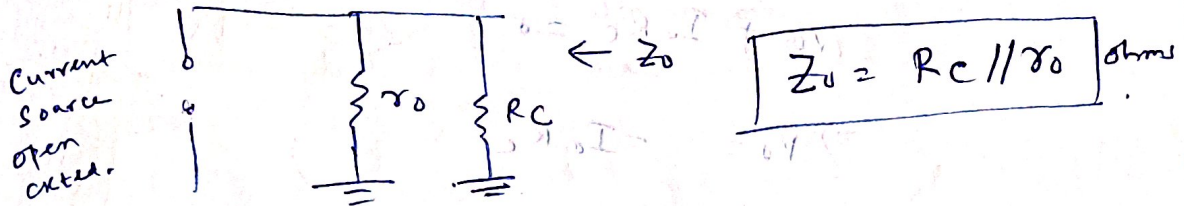 Current
Source
open
cKted.
r₀
RC
← Z₀
Z₀ = RC // r₀ ohms